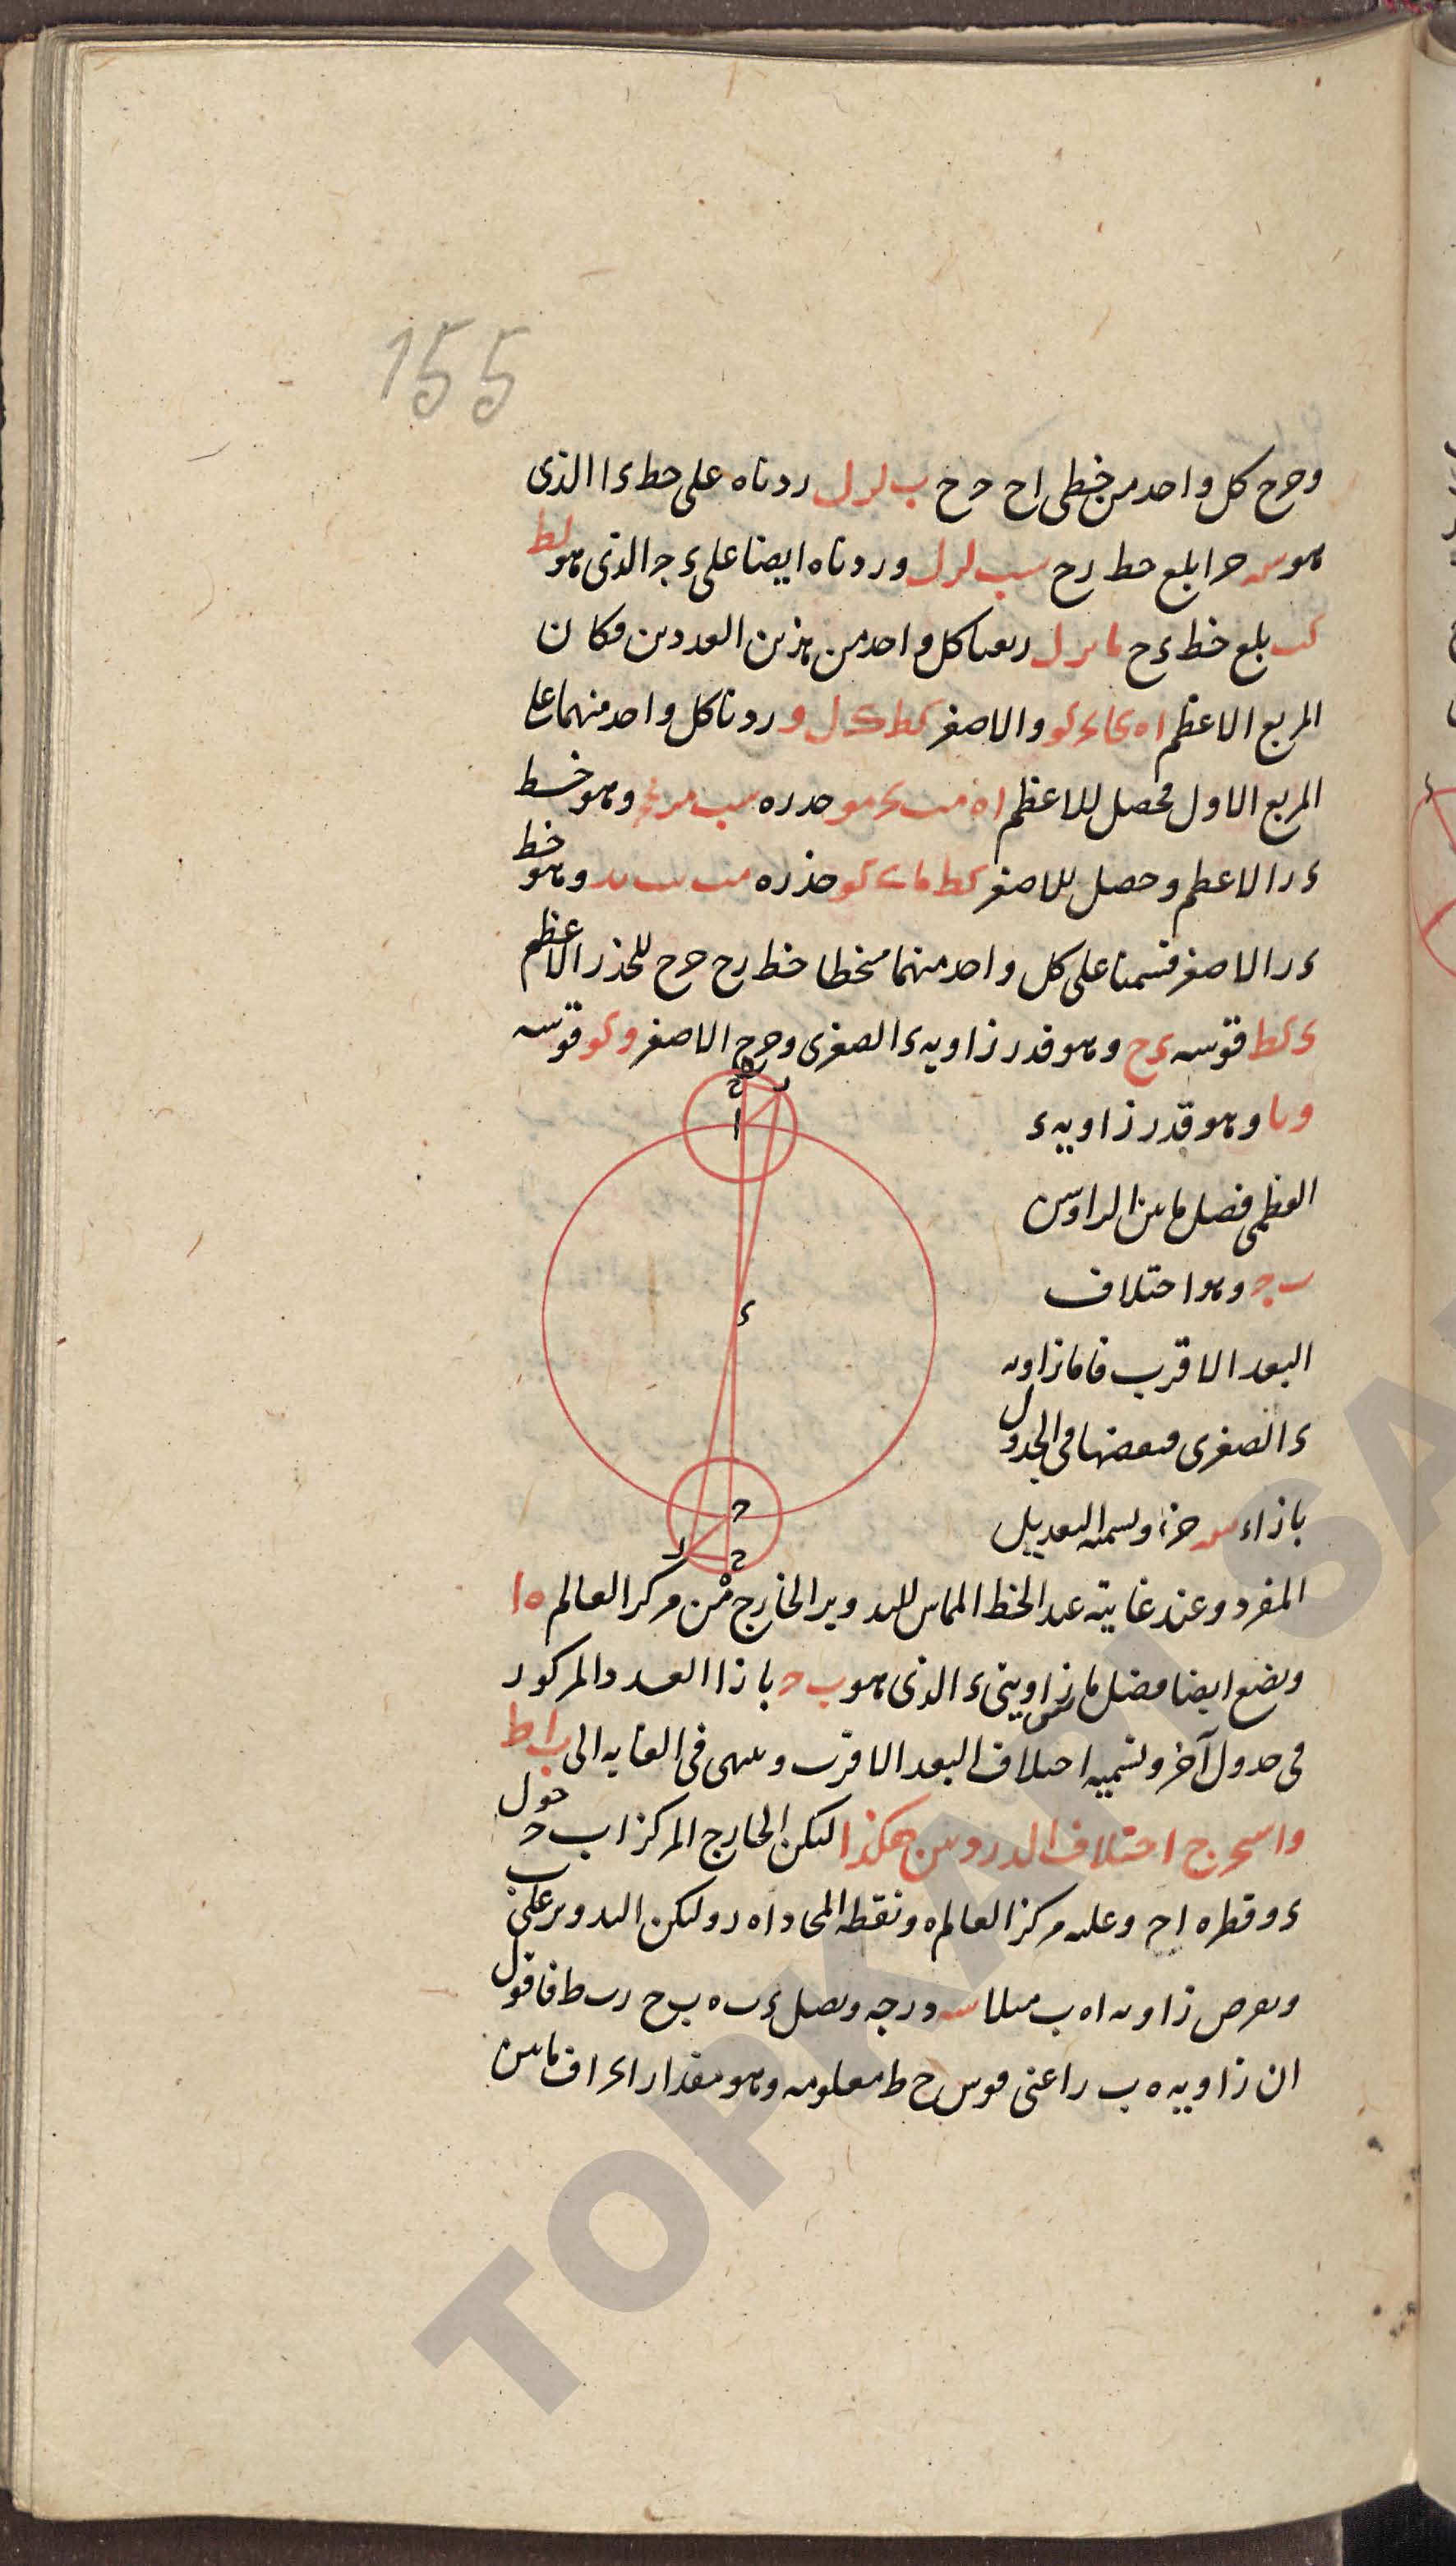 155
وخرج كل واحد من خطى اح حح ب لر ل ردناه على خط ءا الذى
هو س حرا بلع خط رح سب لر ل وردناه ايضا على ء ج الذى هو لط
كب بلع خط ءح ما ىر ل ربعنا كل واحد من هذين العددين فكان
المربع الاعظم والاصغر كط ك ل و ردنا كل واحد منهما على
المربع الاول فحصل للاعظم جذره وهو خط
ء ر الاعظم وحصل للاصغر جذره وهو خط
ء ر الاصغر قسمنا على كل واحد منهما منحطا خط رح خرج للجذر الاعظم
ء كط قوسه ءح وهو قدر زاويه ء الصغرى وخرج الاصغر و كو قوسه
و ما وهو قدر زاويه ء
العظمى فضل ما بين الزاويتين
ب ج وهو اختلاف
البعد الاقرب فاما زاويه
ء الصغرى فنضعها فى الجدول
بازاء س جزء ونسميه التعديل
المفرد وعند غايته عند الخط المماس للتدوير الخارج من مركز العالم ه ا
ونضع ايضا فضل ما بين زاويتى ء الذى هو ب ج بازا العدد المذكور
فى جدول آخر ونسميه اختلاف البعد الاقرب وينتهى فى الغايه الى ب ا ط
واستخرج اختلاف الذروتين هكذا ليكن الخارج المركز اب ح حول
ء وقطره اح وعليه مركز العالم ه ونقطه المحاذاه ر وليكن التدوير على ب
ونفرض زاويه اه ب مثلا س درجه ونصل ءب ه ب ح رب ط فاقول
ان زاويه ه ب ر اعنى قوس ح ط معلومه وهو مقدار انحراف ما بين
ه
ح
ر
ا
ء
ح
ر
ح
ه
TOPKAPI SA